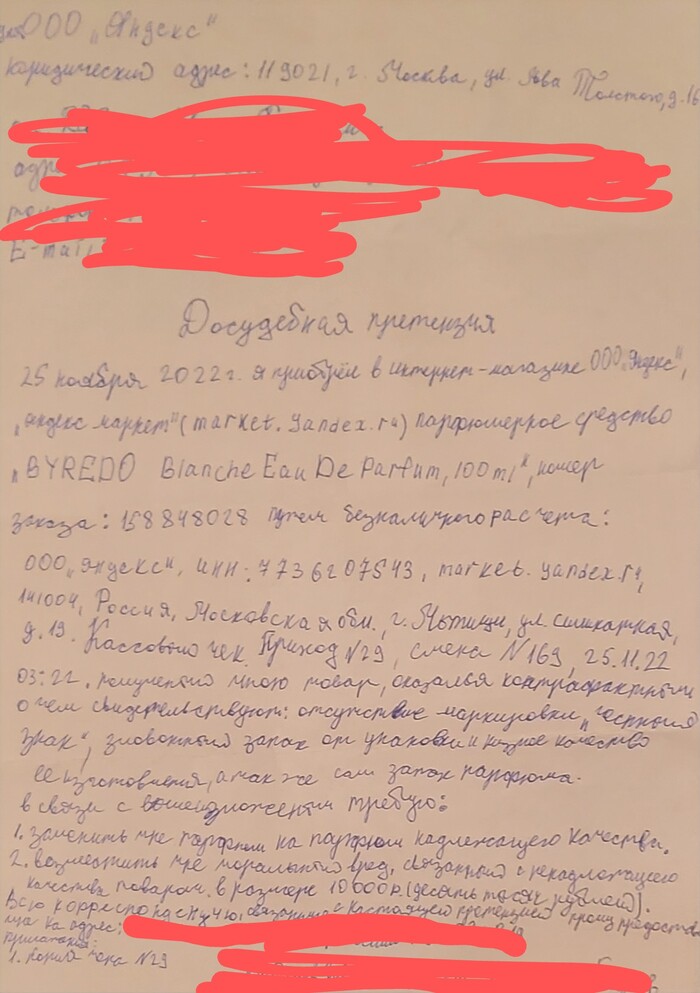 ООО „Яндекс“
юридический адрес: 119021, г. Москва, ул. Льва Толстого, д. 16
адре
E-mail:
Досудебная претензия
25 ноября 2022 г. я приобрёл в интернет-магазине ООО „Яндекс“,
„Яндекс маркет“ (market.yandex.ru) парфюмерное средство
„BYREDO Blanche Eau De Parfum, 100 ml“, номер
заказа: 158848028 путем безналичного расчета:
ООО „Яндекс“, ИНН: 7736207543, market.yandex.ru,
141004, Россия, Московская обл., г. Мытищи, ул. силикатная,
д. 19. Кассовый чек. Приход №29, смена №169, 25.11.22
03:22. полученный мною товар, оказался контрафактным
о чем свидетельствуют: отсутствие маркировки „честный
знак“, зловонный запах от упаковки и низкое качество
ее изготовления, а так же сам запах парфюма.
в связи с вышеизложенным требую:
1. заменить мне парфюм на парфюм надлежащего качества.
2. возместить мне моральный вред, связанный с ненадлежащего
качества товаром в размере 10 000 р. (десять тысяч рублей).
Всю корреспонденцию связанную с настоящей претензией прошу предостав
на адрес:
приложения:
1. Копия чека №29